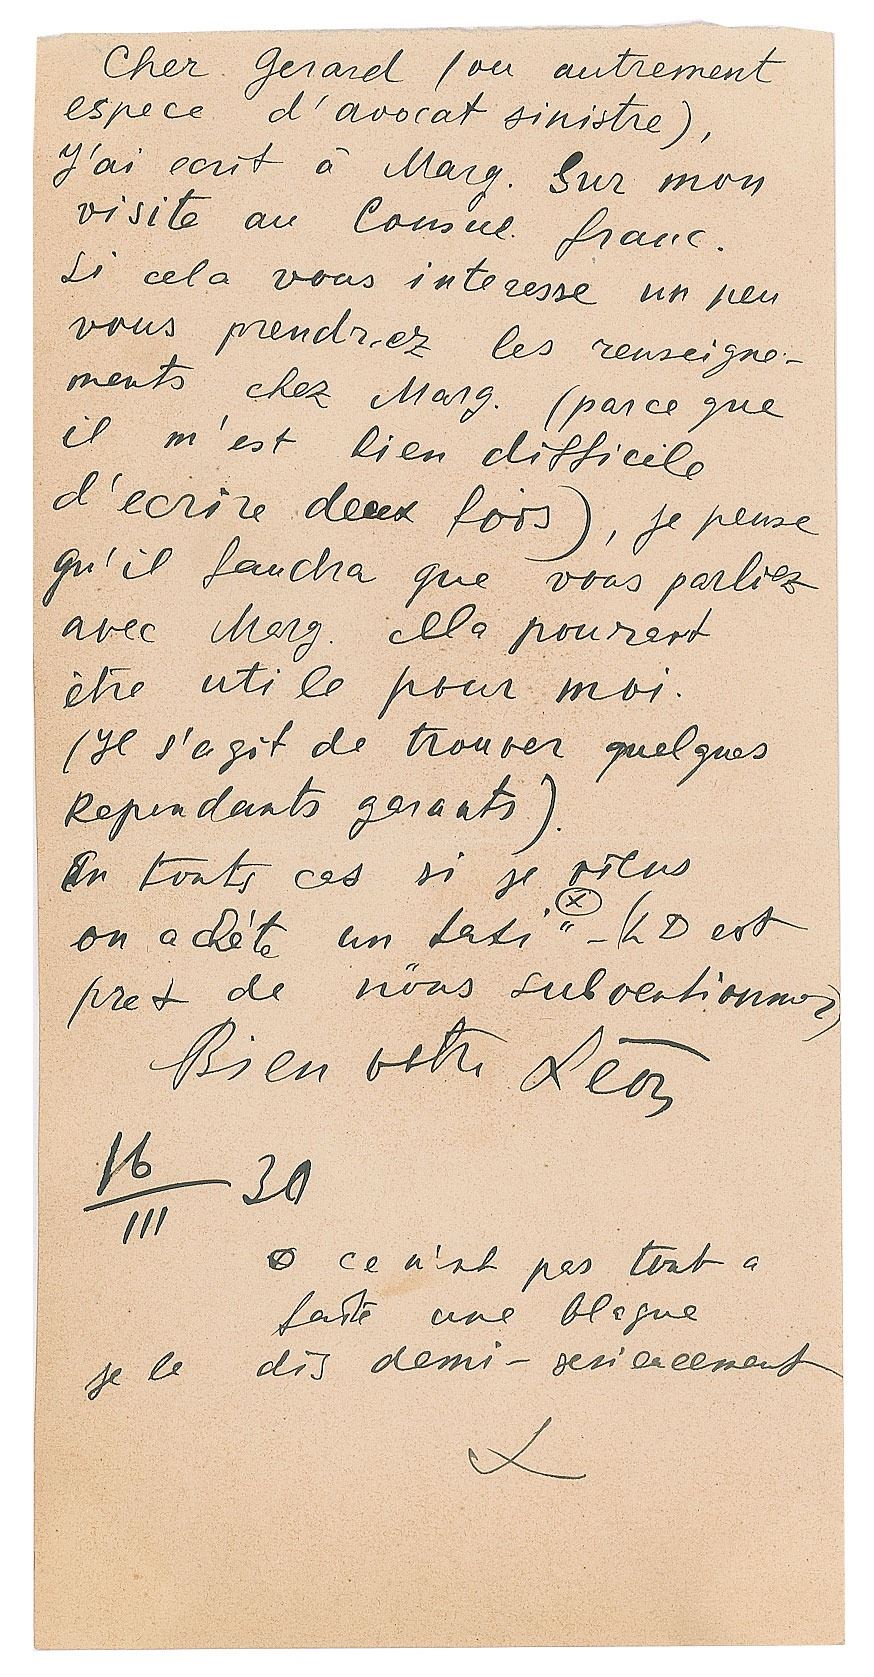 Cher Gerard (ou autrement
espece d'avocat sinistre),
J'ai ecrit à Marg. Sur mon
visite au Consul. franc.
Si cela vous interesse un peu
vous prendriez les renseigne-
ments chez Marg. (parce que
il m'est bien difficile
d'ecrire deux fois), je pense
qu'il faudra que vous parliez
avec Marg. cela pourrait
être utile pour moi.
(Il s'agit de trouver quelques
Rependants garants).
En touts cas si je viens
on achète un taxi" - (LD est
pret de nous subventionner)
Bien votre Léon
16/III 30
ce n'est pas tout a
faite une blague
je le dis demi-serieusement
L